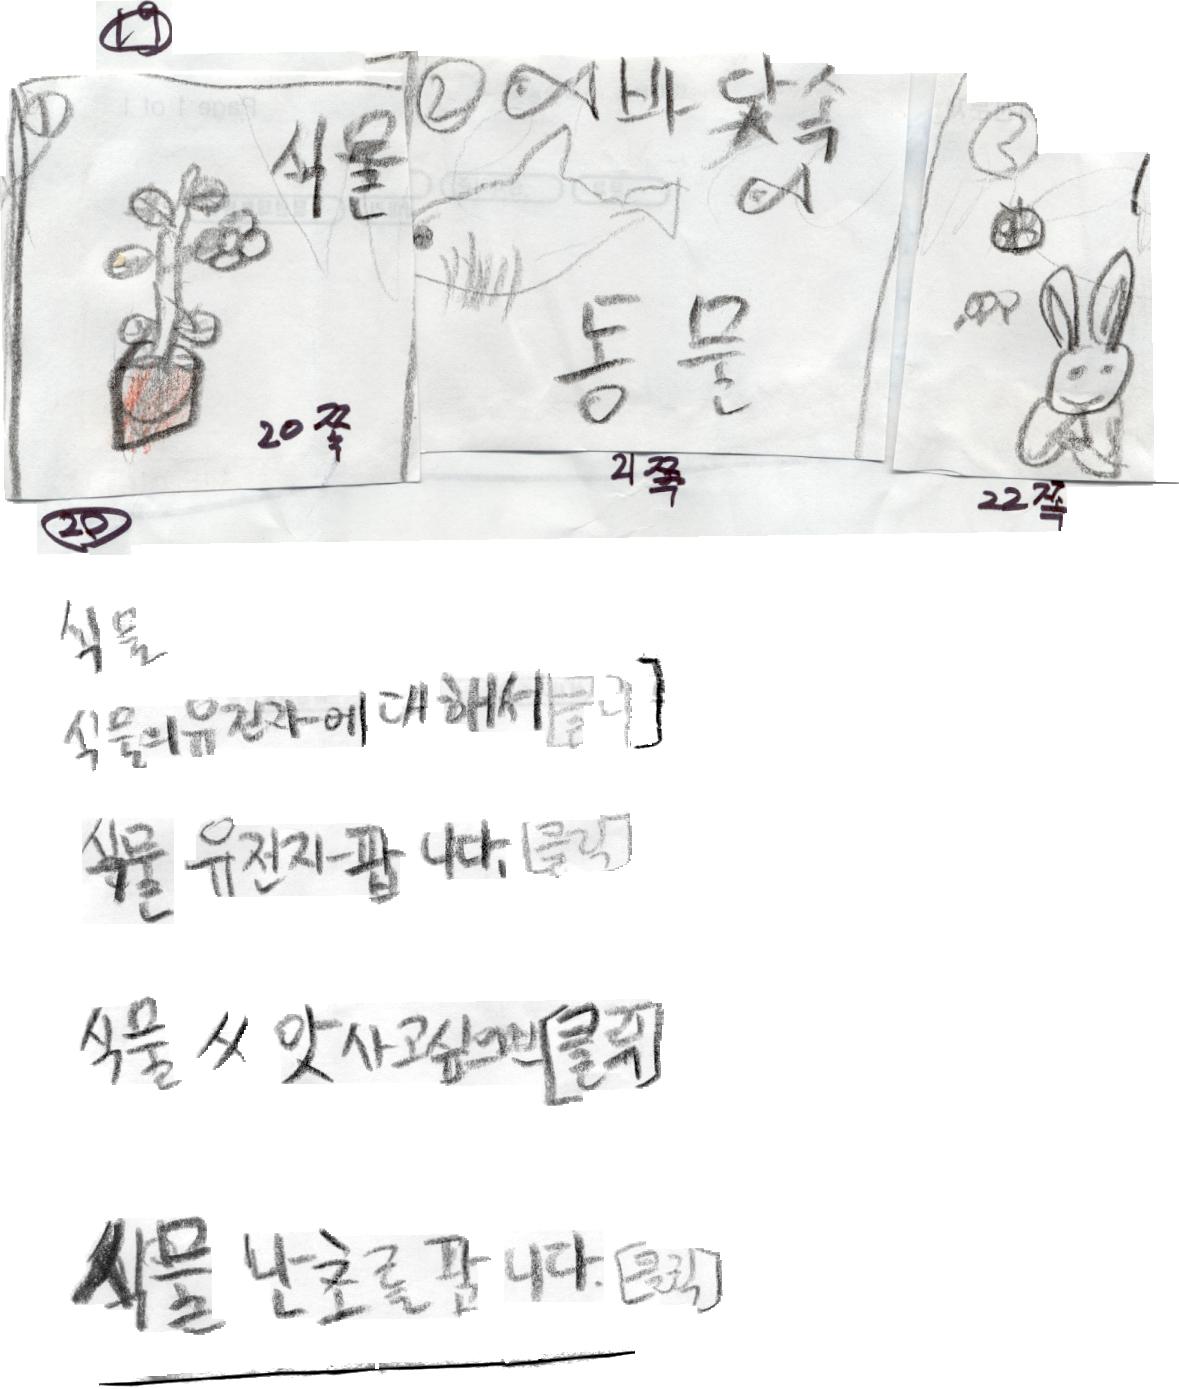 ①
식물
20쪽
② 바닷속
동물
21쪽
③
22쪽
20
식물
식물의 유전자에 대해서 [클릭]
식물 유전자 팝니다. [클릭]
식물 씨앗 사고싶으면 [클릭]
식물 난초를 팝니다. [클릭]